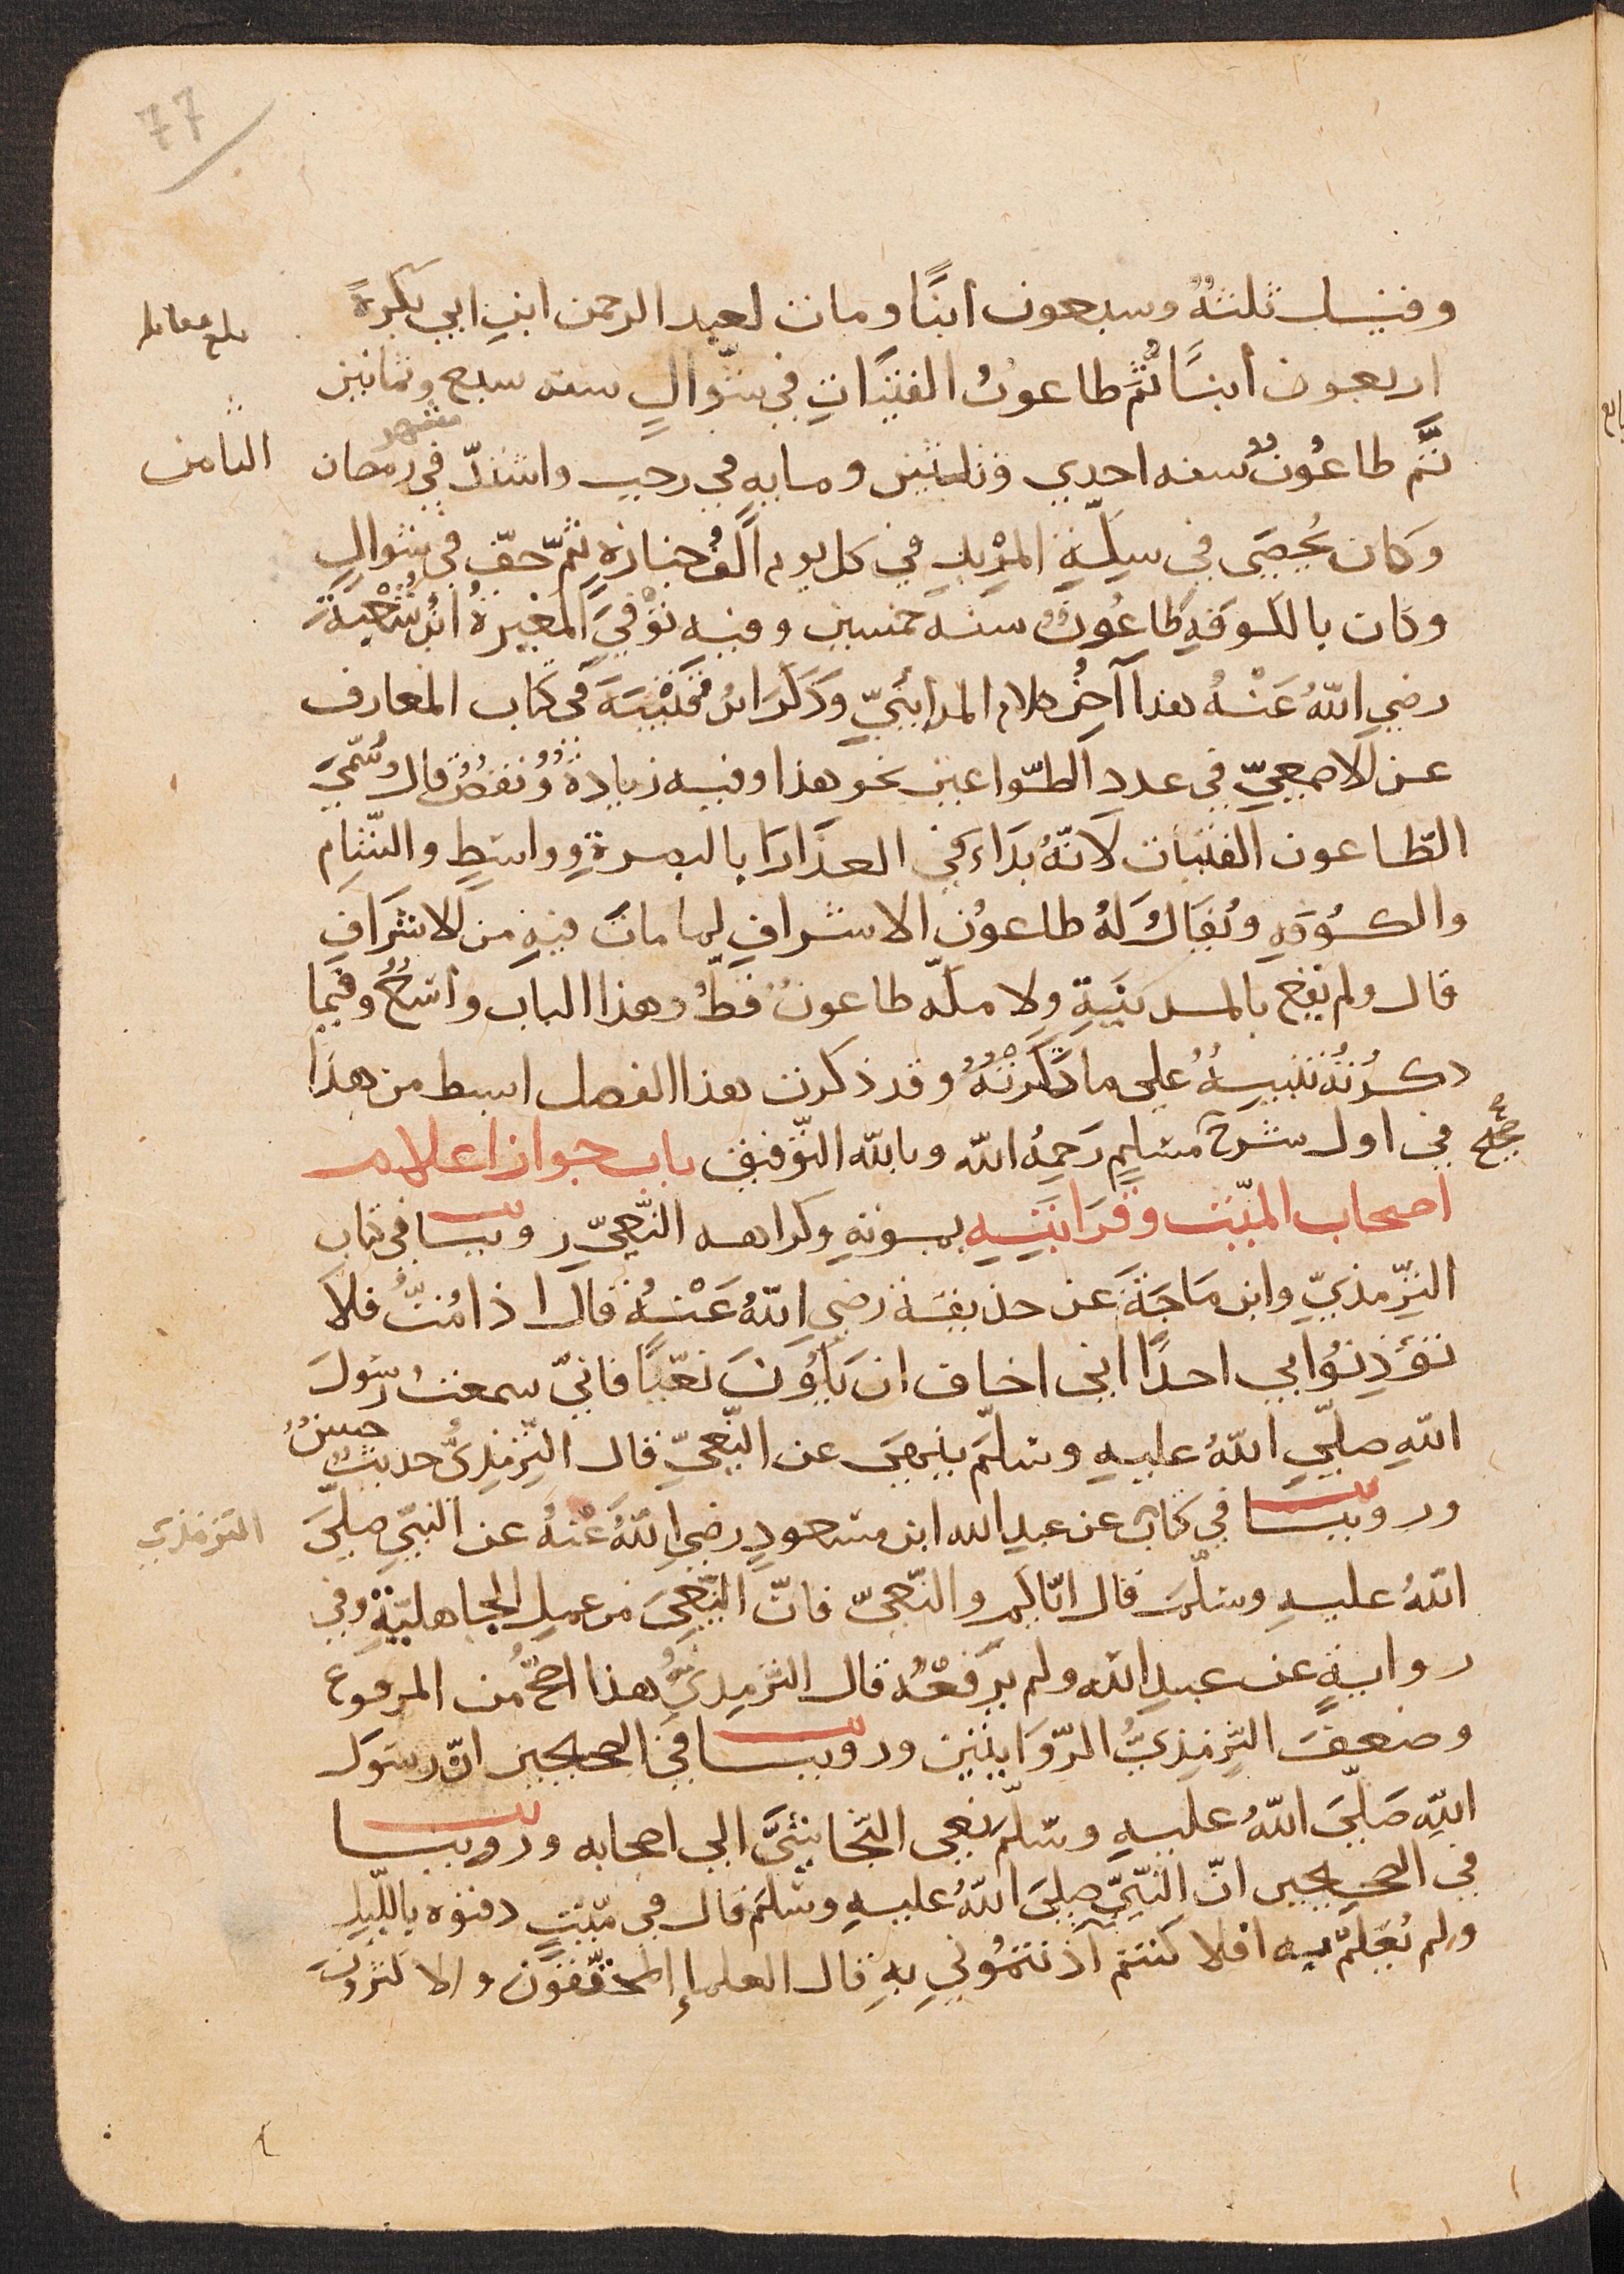 77
وقيل ثلثةٌ وسبعون ابنًا ومات لعبد الرحمن ابنِ ابي بكرةً
بلغ مقابله
اربعون ابنًا ثُمَّ طاعونُ الفتيَاتِ في شوّالٍ سنه سبع وثمانين
ثُمَّ طاعُونٌ سنه احدي وثلثين ومايه في رجب واشتدّ في شهر رمضان
الثامن
وكان يُحصَى في سِكّةِ المِرْبدِ في كل يوم اَلفُ جنازةٍ ثمّ خفّ في شوالٍ
وكان بالكوفةِ طاعُونٌ سنه خمسين وفيه تُوفّيَ المغيرةُ ابنُ شُعْبَةَ
رضي اللهُ عَنْهُ هذا آخِرُ كلام المدائنيّ وَذَكَرَ ابنُ قُتَيْبَةَ في كتاب المعارف
عن الاصمعيّ في عدد الطّواعين نحو هذا وفيه زيادةٌ ونقصٌ قال وسُمّيَ
الطّاعون الفتيات لانّهُ بَدَاء في العذَارَا بالبصرةِ وواسِطٍ والشّامِ
والكُوفةِ ويُقَالُ لهُ طاعونُ الاشرافِ لِما ماتَ فيهِ من الاشرَافِ
قال ولم يقع بالمدينَةِ ولا مكّه طاعونٌ قطُّ وهذا الباب واسعٌ وفيما
ذكرْتُهُ تنبيهٌ على ما تَرَكْتُهُ وقد ذكرت هذا الفصل ابسط من هذا
صح
في اول شرح مسْلمٍ رَحِمهُ الله وبالله التّوفيق باب جواز اعلام
اصحاب الميّت وقَرَابَتِهِ بموتهِ وكراهه النّعيِّ روينا في كتاب
التِّرْمذيّ وابن مَاجَةَ عن حذيفة رضي اللهُ عَنْهُ قال اذا مُتُّ فلا
تؤذِنُوا بي احدًا اني اخاف ان يكُونَ نعْيًا فانّي سمعت رسُولَ
اللهِ صلّي اللهُ عليهِ وسَلّمَ ينهَى عن النّعيّ قال التِّرْمِذيُّ حديثٌ حسنٌ
وروينا في كتاب عن عبدِ الله ابن مسْعودٍ رضي اللهُ عَنْهُ عن النبيّ صلّيَ
الترمذي
اللهُ عليهِ وسَلّمَ قال ايّاكم والنّعيّ فانّ النّعيَ من عملِ الجاهليّةِ وفي
روايةٍ عن عبدِ الله ولم يرْفعْهُ قال التِّرْمِذيُّ هذا اصحُّ من المرفوع
وضعف التِّرْمِذيُّ الرّوَايتين وروينا في الصحيحين انّ رسُولَ
اللهِ صَلّيَ اللهُ عليهِ وسَلّمَ نعى النّجاشيَّ الى اصحابه وروينا
في الصحيحين انّ النّبيّ صليَ اللهُ عليهِ وسَلّمَ قال في ميّتٍ دفنوه بالليلِ
ولم يُعلم به افلا كنتم آذنتمُوني بهِ قال العلماء المحقّقونَ والاكثرونَ